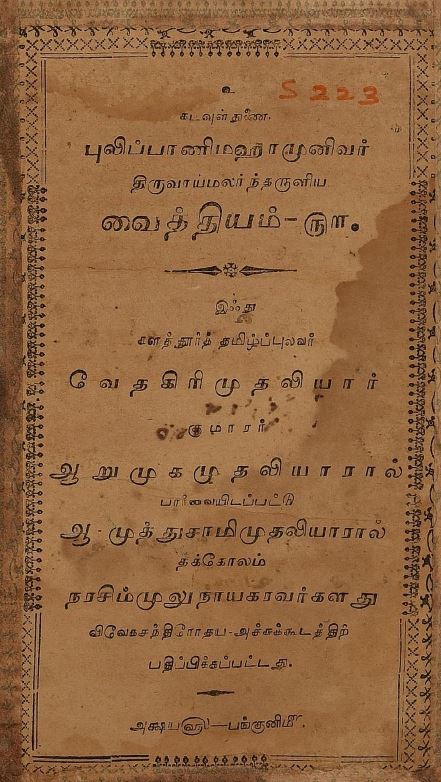 உ
S 223
கடவுள்துணை.
புலிப்பாணிமஹாமுனிவர்
திருவாய்மலர்ந்தருளிய
வைத்தியம்-௫௱.
இஃது
களத்தூர்த் தமிழ்ப்புலவர்
வேதகிரிமுதலியார்
குமாரர்
ஆறுமுகமுதலியாரால்
பார்வையிடப்பட்டு
ஆ-முத்துசாமிமுதலியாரால்
தக்கோலம்
நரசிம்முலுநாயகரவர்களது
விவேகசந்திரோதய-அச்சுக்கூடத்திற்
பதிப்பிக்கப்பட்டது.
அக்ஷய௵-பங்குனி௴.